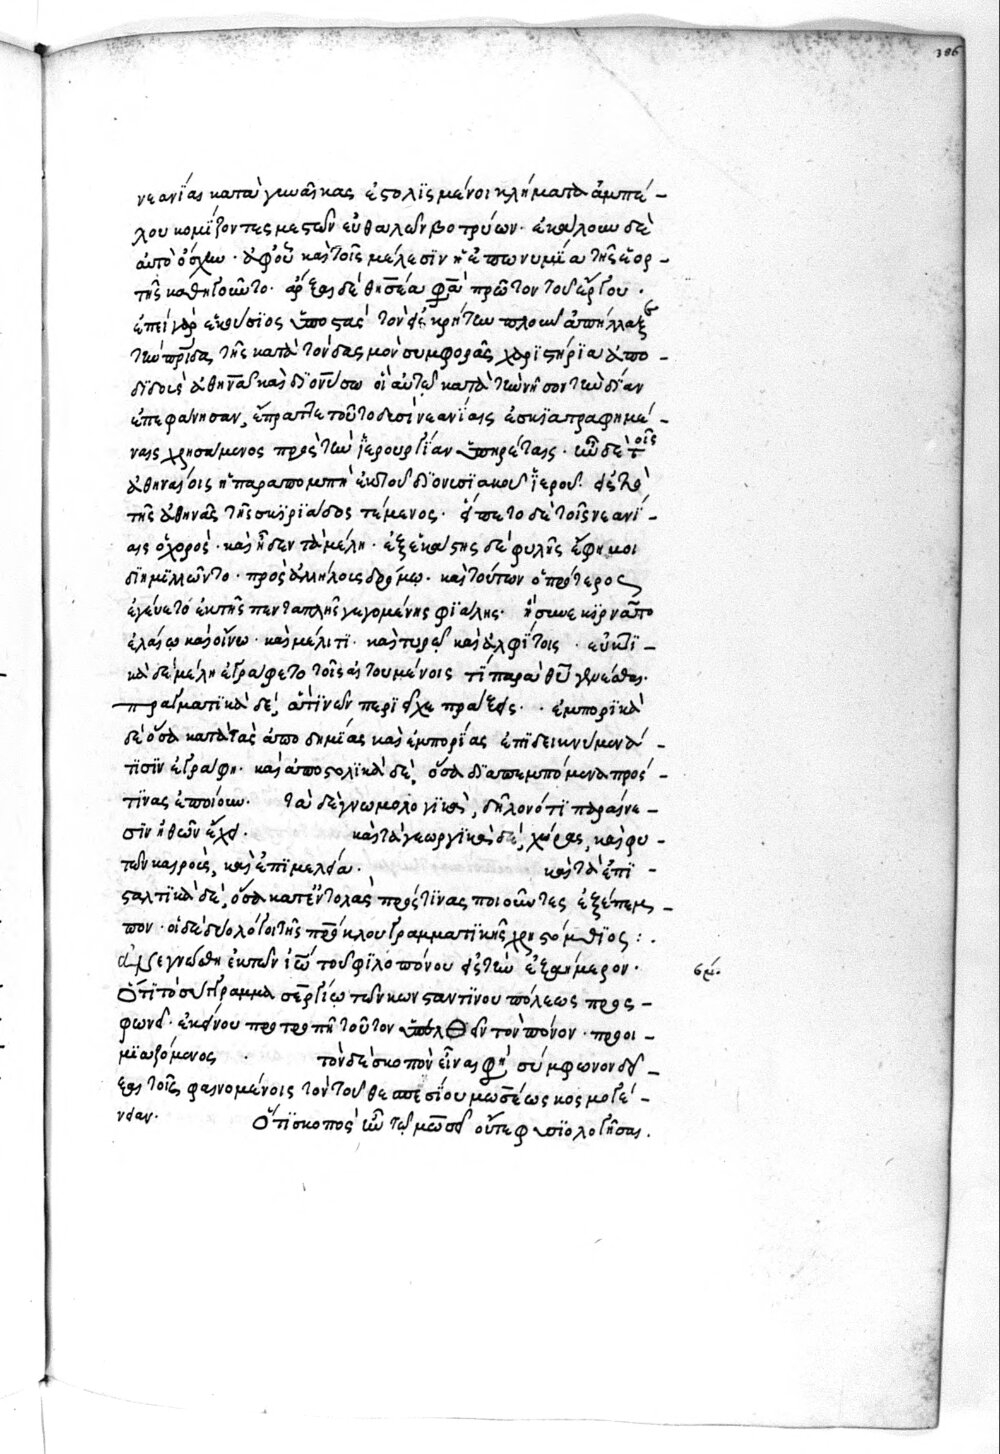 386
νεανίαι κατὰ γυναῖκας ἐστολισμένοι κλήματα ἀμπέ-
λου κομίζοντες μεστῶν εὐθαλῶν βοτρύων· ἐκάλουν δὲ
αὐτὸ ὄσχην· ἀφ' οὗ καὶ τοῖς μέλεσιν ἡ ἐπωνυμία τῆς ἑορ-
τῆς καθηγοῦντο· ἄρξαι δὲ θησέα φασὶ πρῶτον τοῦ ἔργου·
ἐπεὶ γὰρ ἑκούσιος ὑποστὰς τὸν εἰς κρήτην πλοῦν ἀπήλλαξε
τὴν πρίδα τῆς κατὰ τὸν δασμὸν συμφορᾶς χαριστήρια ἀπο-
διδοὺς ἀθηνᾶ καὶ διονύσω οἳ αὐτῶ κατὰ τὴν νῆσον τὴν δίαν
ἐπεφάνησαν, ἔπραττε τοῦτο δυσὶ νεανίαις ἐσκιατραφημέ-
ναις χρησάμενος πρὸς τὴν ἱερουργίαν ὑπηρέταις· ἦν δὲ τοῖς
ἀθηναίοις ἡ παραπομπὴ ἐκ τοῦ διονυσιακοῦ ἱεροῦ εἰς τὸ
τῆς ἀθηνᾶς τῆς σκιριάδος τέμενος· εἵπετο δὲ τοῖς νεανί-
αις ὁ χορός· καὶ ἦδεν τὰ μέλη· ἐξ ἑκάστης δὲ φυλῆς ἔφηβοι
διημιλλῶντο· πρὸς ἀλλήλους δρόμω· καὶ τούτων ὁ πρότερος
ἐγεύετο ἐκ τῆς πενταπλῆς λεγομένης φιάλης· ἣ συνεκιρνᾶτο
ἐλαίω καὶ οἴνω· καὶ μέλιτι· καὶ τυρῶ καὶ ἀλφίτοις· εὐκτι-
κὰ δὲ μέλη ἐγράφετο τοῖς αἰτουμένοις τί παρὰ θεοῦ γενέσθαι·
πραγματικὰ δέ, ἅτινων περιεῖχε πράξεις· ἐμπορικὰ
δὲ ὅσα κατὰ τὰς ἀποδημίας καὶ ἐμπορίας ἐπιδεικνύμενά
τισιν ἐγράφη· καὶ ἀποστολικὰ δέ, ὅσα διαπεμπόμενα πρός
τινας ἐποίουν· τὰ δὲ γνωμολογικὰ, δηλονότι παραίνε-
σιν ἠθῶν ἔχει· καὶ τὰ γεωργικὰ δέ, χώρας, καὶ φυ-
τῶν καιροὺς, καὶ ἐπιμελεία· καὶ τὰ ἐπι-
σταλτικὰ δέ, ὅσα κατ' ἐντολὰς πρός τινας ποιοῦντες ἐξέπεμ-
πον· οἱ δὲ δύο λόγοι τῆς πρόκλου γραμματικῆς χρηστομαθίας:·
Ἀνεγνώσθη ἐκ τῶν ἰω τοῦ φιλοπόνου εἰς τὴν ἑξαήμερον·
σμ·
Ὅτι τὸ σύγγραμμα σεργίω τῶ κωνσταντίνου πόλεως προς-
φωνεῖ· ἐκείνου προτροπῆ τοῦτον ὑπελθεῖν τὸν πόνον· προοι-
μιαζόμενος· τὸν δὲ σκοπὸν εἶναι φησὶ, σύμφωνον δεῖ-
ξαι τοῖς φαινομένοις τὸν τοῦ θεσπεσίου μωσέως κοσμογέ-
νειαν· Ὅτι σκοπὸς ἦν τῶ μωσεῖ οὔτε φυσιολογῆσαι·